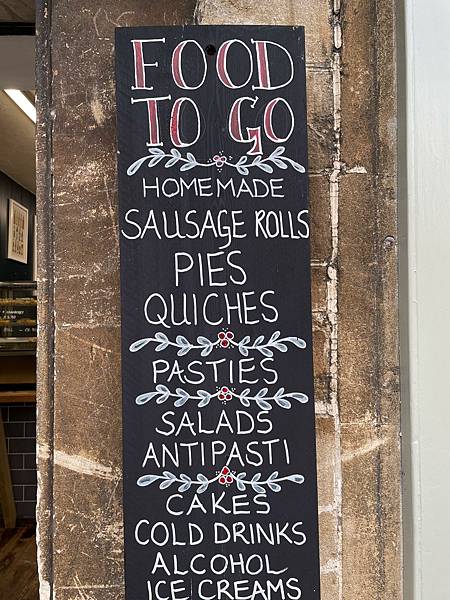 FOOD
TO GO
HOMEMADE
SAUSAGE ROLLS
PIES
QUICHES
PASTIES
SALADS
ANTIPASTI
CAKES
COLD DRINKS
ALCOHOL
ICE CREAMS